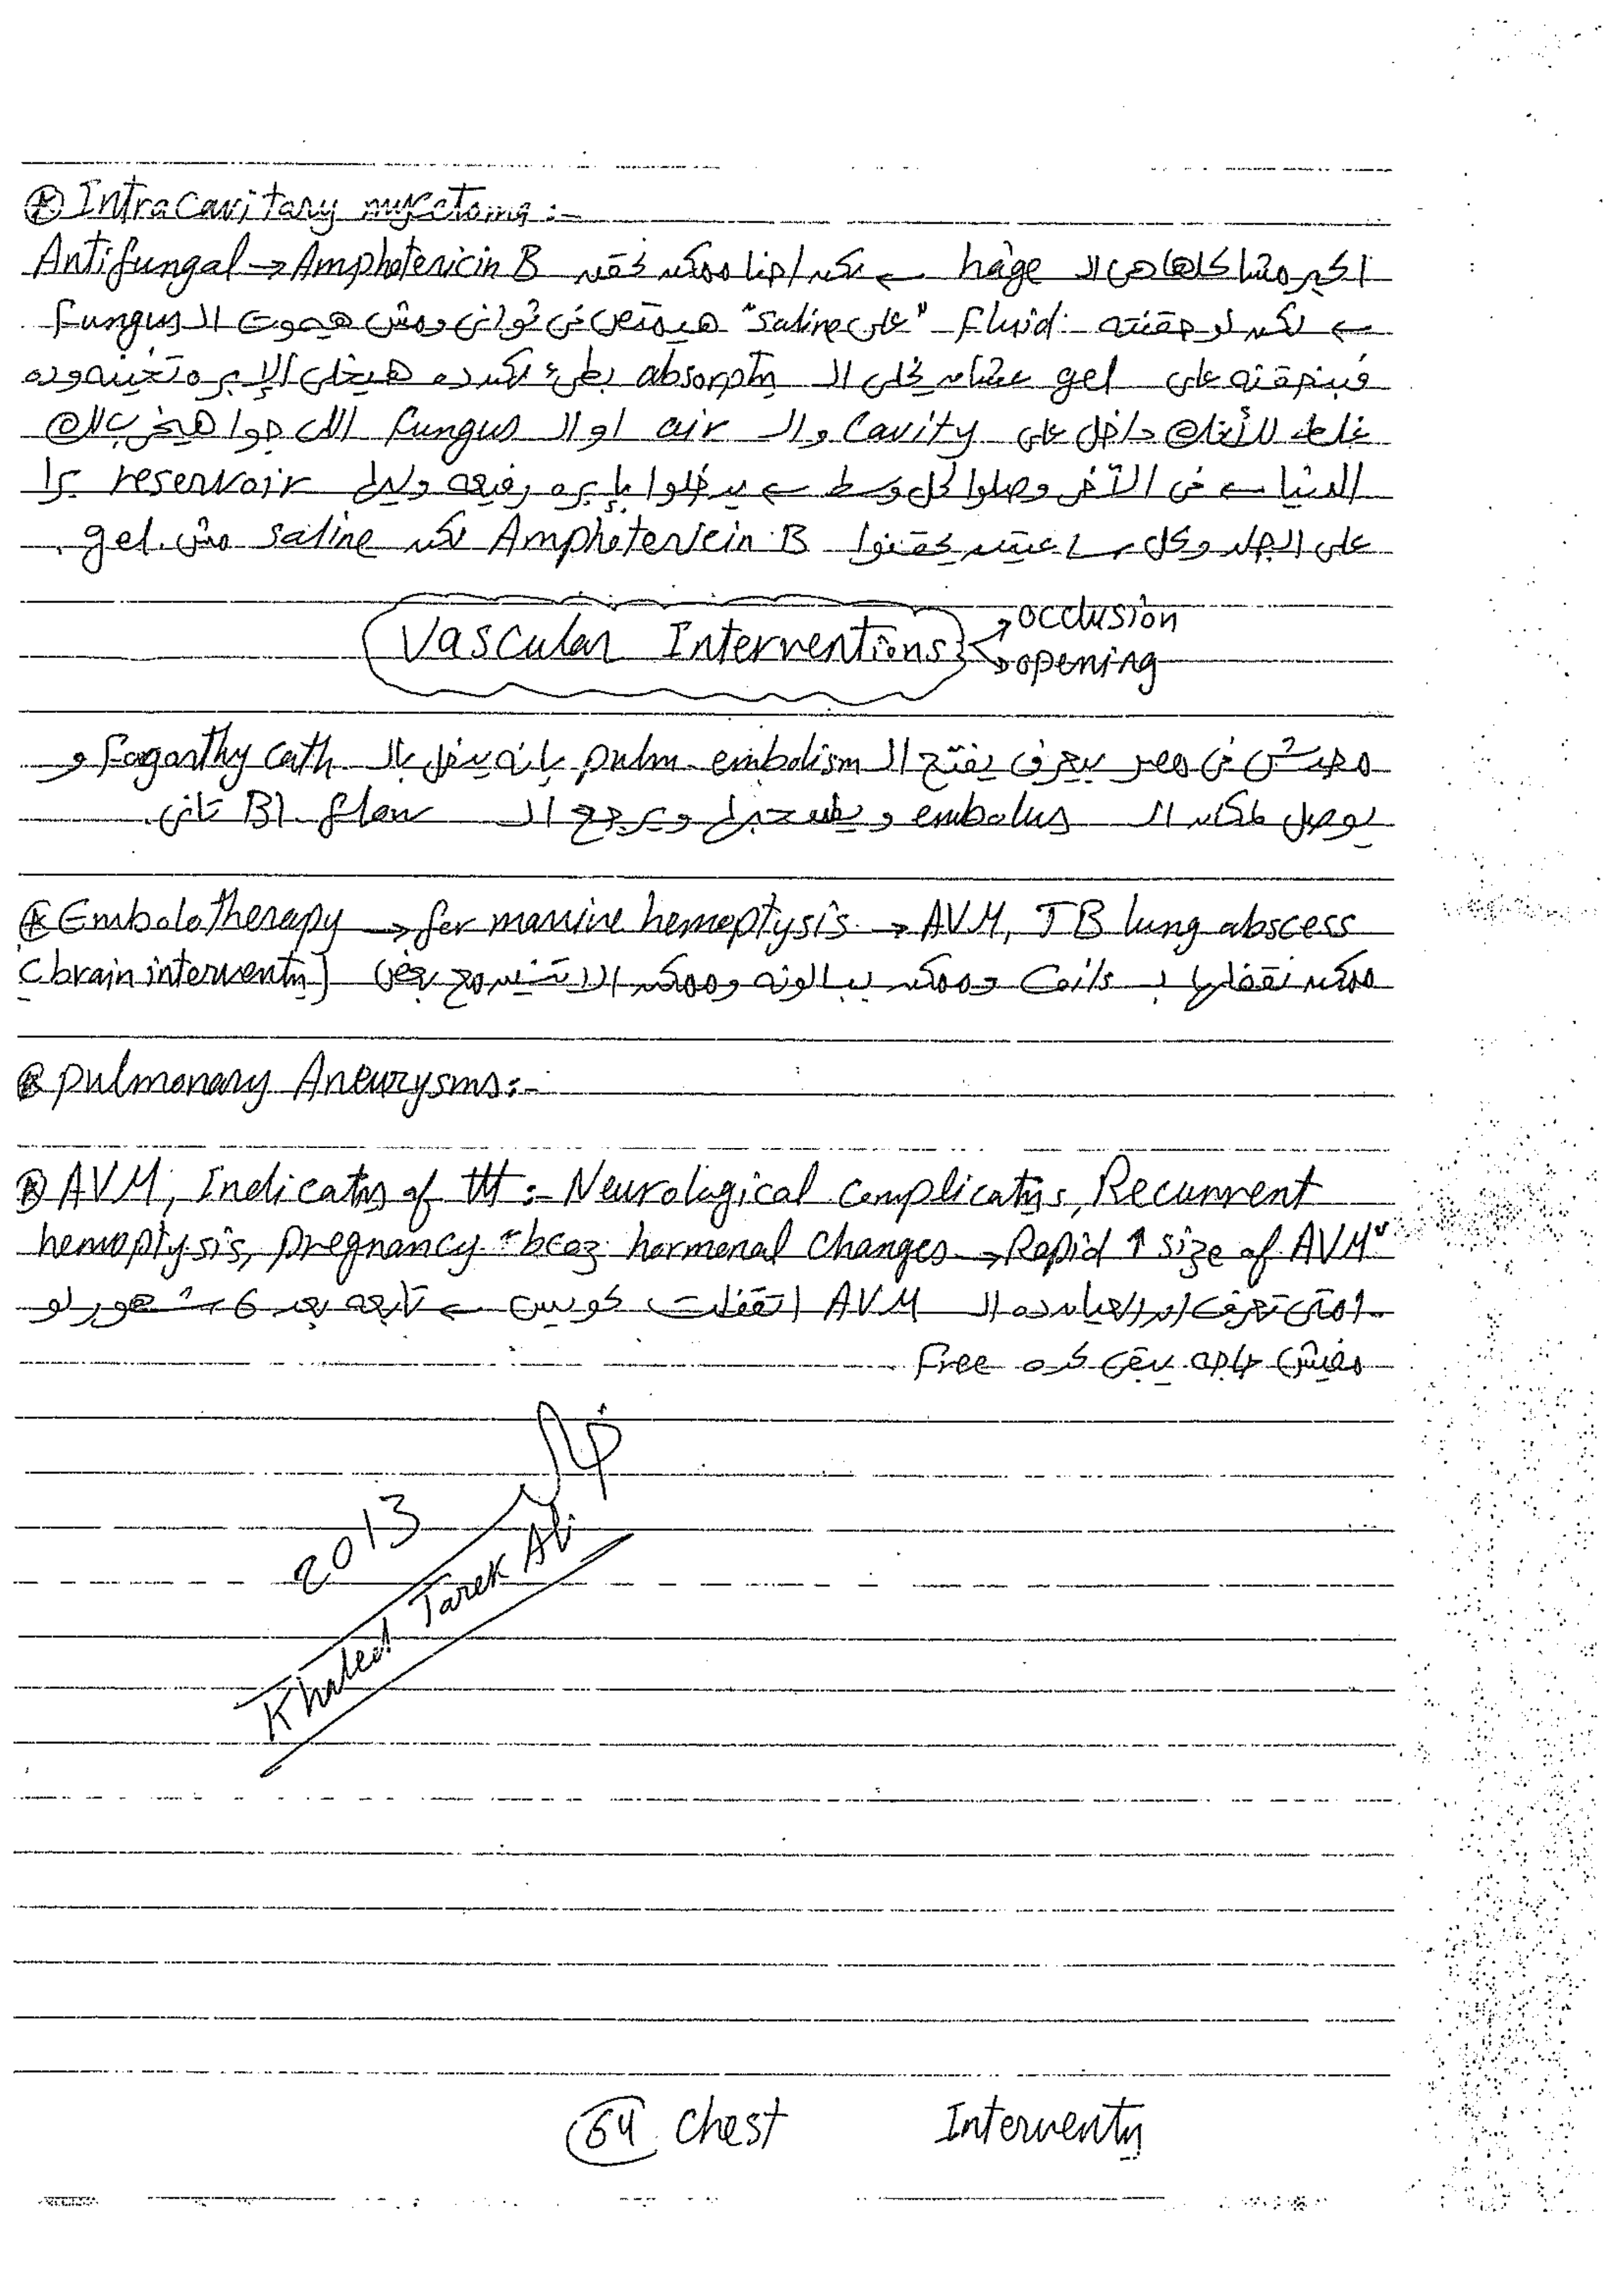 ⊛ Intracavitary mycetoma :-
اكبر مشاكلها هى الـ hage ← لكن احنا ممكن نحقن Antifungal → Amphotericin B
← لكن لو حقنته Fluid "على saline" هيمتص فى ثوانى ومش هيموت الـ fungus
فبنحقنه على gel عشان يخلى الـ absorptn بطئ لكن ده هيخلى الإبره تخينه وده
غلط لأنك داخل على cavity والـ air او الـ fungus اللى جوا هيخرب لك
الدنيا ← فى الآخر وصلوا لحل وسط ← يدخلوا بإبره رفيعه و reservoir برا
على الجلد وكل ساعتين يحقنوا Amphotericin B لكن saline مش gel.
Vascular Interventions
→ occlusion
→ opening
محدش فى مصر بيعرف يفتح الـ pulm. embolism بإنه يدخل بالـ Fogarthy cath و
يوصل لمكان الـ embolus و ويرجع الـ Bl flow تانى.
⊛ Embolotherapy → for massive hemoptysis → AVM, TB lung abscess
ممكن نقفلها بـ Coils وممكن ببالونه وممكن الاتنين مع بعض (brain interventn)
⊛ pulmonary Aneurysms :-
⊛ AVM, Indicatns of ttt :- Neurological complicatns, Recurrent
hemoptysis, pregnancy "bcoz hormonal changes → Rapid ↑ size of AVM"
امتى تعرف ان العيان ده الـ AVM اتقفلت كويس ← تابعه بعد 6 شهور لو
مفيش حاجه يبقى كده free
2013
Khaled Tarek Ali
64 Chest Interventn